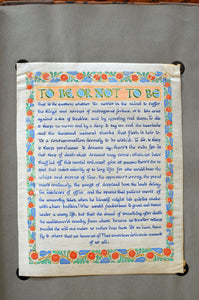 TO BE, OR NOT TO BE
that is the question: whether 'tis nobler in the mind to suffer
the slings and arrows of outrageous fortune, or to take arms
against a sea of troubles, and by opposing end them. To die
to sleep no more; and by a sleep to say we end the heartache
and the thousand natural shocks that flesh is heir to:
'tis a consummation devoutly to be wished. To die, to sleep
to sleep, perchance to dream: ay, there's the rub: for in
that sleep of death what dreams may come, when we have
shuffled off this mortal coil, must give us pause: there's the
respect that makes calamity of so long life: for who would bear the
whips and scorns of time, the oppressor's wrong, the proud
man's contumely, the pangs of despised love, the law's delay,
the insolence of office and the spurns that patient merit of
the unworthy takes, when he himself might his quietus make
with a bare bodkin? Who would fardels bear, to grunt and sweat
under a weary life, but that the dread of something after death
the undiscovered country from whose bourn no traveller returns
puzzles the will and makes us rather bear those ills we have, than
fly to others that we know not of? Thus conscience does make cowards
of us all.